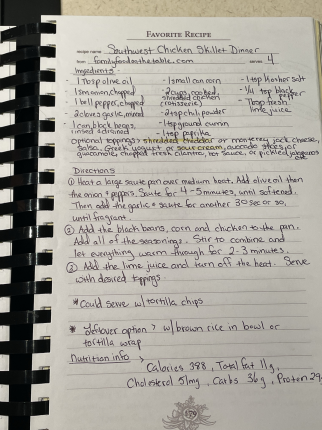 FAVORITE RECIPE
RECIPE NAME Southwest Chicken Skillet Dinner
FROM familyfoodonthetable.com SERVES 4
Ingredients -
- 1 Tbsp olive oil - 1 small can corn - 1 tsp Kosher salt
- 1 sm onion, chopped - 2 cups cooked, shredded chicken (rotisserie) - 1/4 tsp black pepper
- 1 bell pepper, chopped - 2 tsp chili powder - 1 Tbsp fresh lime juice
- 2 cloves garlic, minced - 1 tsp ground cumin
- 1 can black beans, rinsed & drained - 1 tsp paprika
Optional toppings: shredded cheddar or monterey jack cheese,
salsa, Greek yogurt or sour cream, avocado slices or
guacamole, chopped fresh cilantro, hot sauce, or pickled jalapeños
Directions
① Heat a large saute pan over medium heat. Add olive oil then
the onion & peppers. Saute for 4-5 minutes, until softened.
Then add the garlic & saute for another 30 sec or so,
until fragrant.
② Add the black beans, corn and chicken to the pan.
Add all of the seasonings. Stir to combine and
let everything warm through for 2-3 minutes.
③ Add the lime juice and turn off the heat. Serve
with desired toppings.
* Could serve w/ tortilla chips
* Leftover option? w/ brown rice in bowl or
tortilla wrap
Nutrition info >
Calories 398, Total fat 11g,
Cholesterol 51mg, Carbs 36g, Protein 29